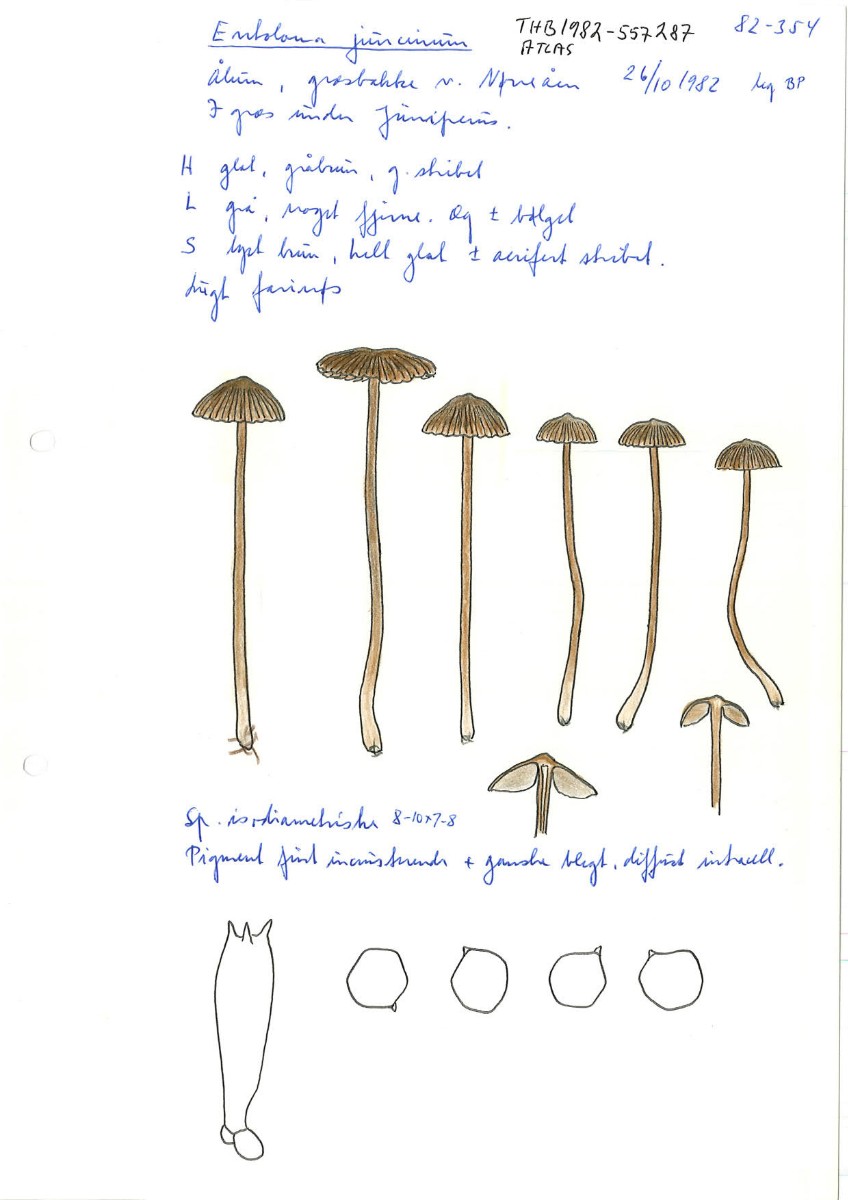 Entoloma juncinum
THB1982-557287
ATLAS
82-354
Ålum, græsbakke v. Nørreåen 26/10 1982 leg BP
I græs under Juniperus.
H glat, gråbrun, g. stribet
L grå, noget fjerne. Æg ± bølget
S lyst brun, helt glat ± aerifert stribet.
Lugt farinøs
Sp. isodiametriske 8-10×7-8
Pigment fint incrusterende + ganske blegt, diffust intracell.